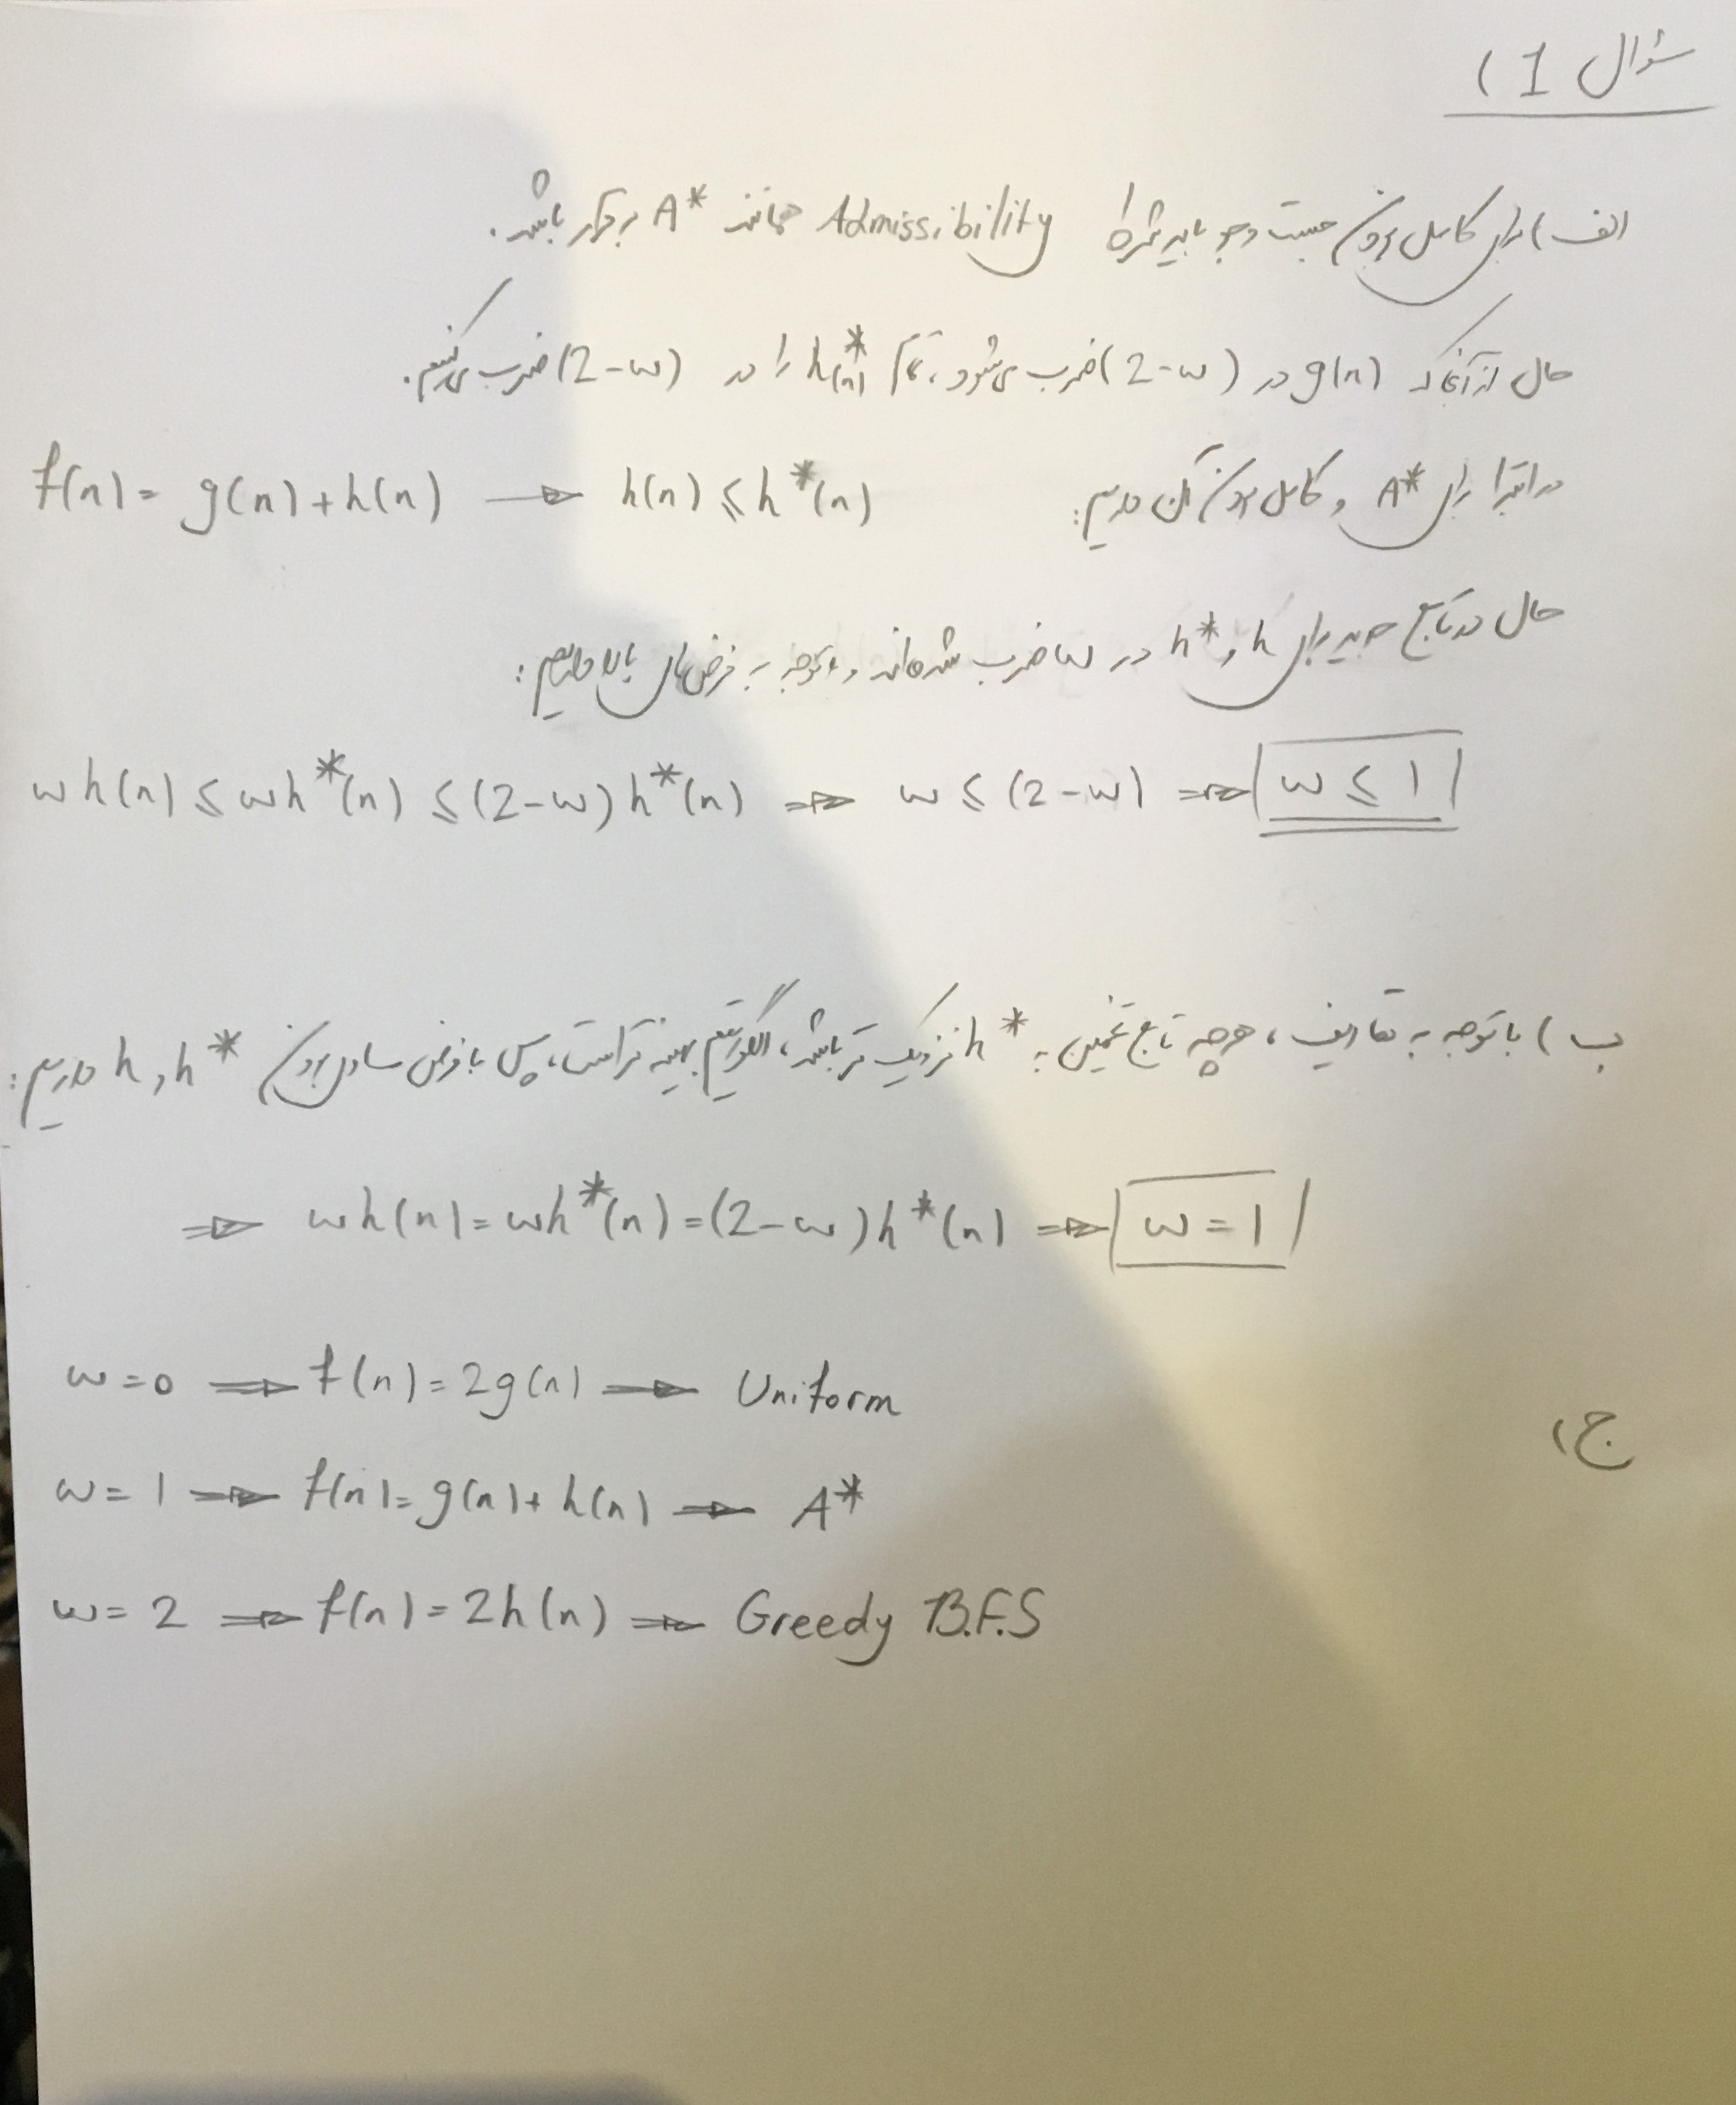 سؤال 1)
الف) برای کامل بودن جست و جو باید شرط Admissibility همانند A* برقرار باشد.
حال از آنجا که g(n) در (2-w) ضرب می‌شود، h*(n) را در (2-w) ضرب می‌کنیم.
در ابتدا برای A* و کامل بودن آن داریم: f(n) = g(n) + h(n) → h(n) ≤ h*(n)
حال در تابع جدید برای h و h* در w ضرب شده‌اند و باتوجه به فرض‌های بالا داریم:
wh(n) ≤ wh*(n) ≤ (2-w)h*(n) ⇒ w ≤ (2-w) ⇒ w ≤ 1
ب) با توجه به تعاریف، هرچه تابع تخمین به h* نزدیک تر باشد، الگوریتم بهینه تر است، پس با فرض مساوی بودن h و h* داریم:
⇒ wh(n) = wh*(n) = (2-w)h*(n) ⇒ w = 1
ج)
w = 0 ⇒ f(n) = 2g(n) → Uniform
w = 1 ⇒ f(n) = g(n) + h(n) → A*
w = 2 ⇒ f(n) = 2h(n) ⇒ Greedy B.F.S